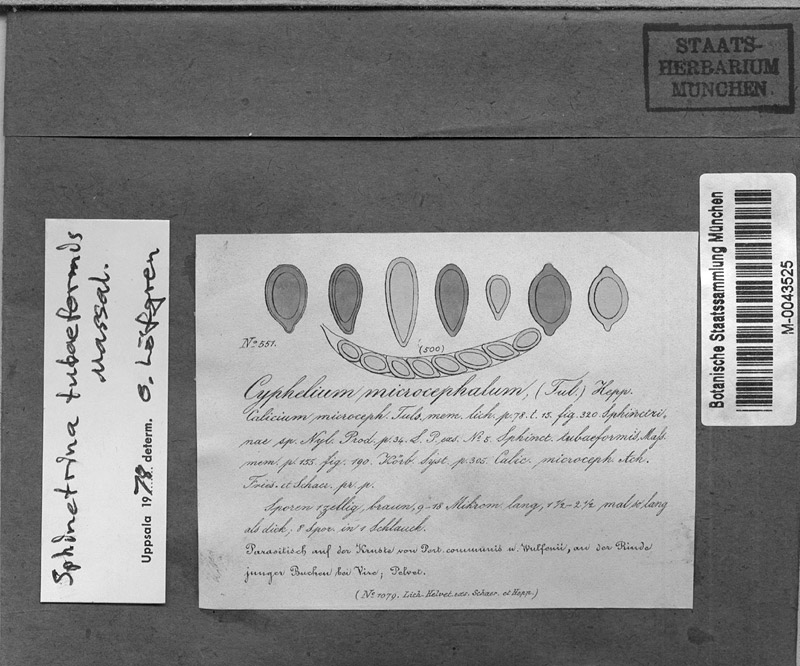 STAATS-
HERBARIUM
MÜNCHEN
Botanische Staatssammlung München
M-0043525
Sphinctrina tubaeformis
Massal.
Uppsala 1978 determ. O. Löfgren
No 551.
(500)
Cyphelium microcephalum, (Tul.) Hepp.
Calicium microceph. Tuls. mem. lich. p. 78. t. 15. fig. 320. Sphinctri,
nae sp. Nyl. Prod. p. 34. S. P. exs. No 5. Sphinct. tubaeformis, Mass.
mem. p. 155. fig. 190. Körb. Syst. p. 305. Calic. microceph. Ach.
Fries. et Schaer. pr. p.
Sporen 1 zellig, braun, 9-18 Mikrom. lang, 1 1/2 - 2 1/2 mal so lang
als dick; 8 Spor. in 1 Schlauch.
Parasitisch auf der Kruste von Pert. communis u. Wulfenii, an der Rinde
junger Buchen bei Vire; Pelvet.
(No 1079. Lich. Helvet. exs. Schaer. et Hepp.)